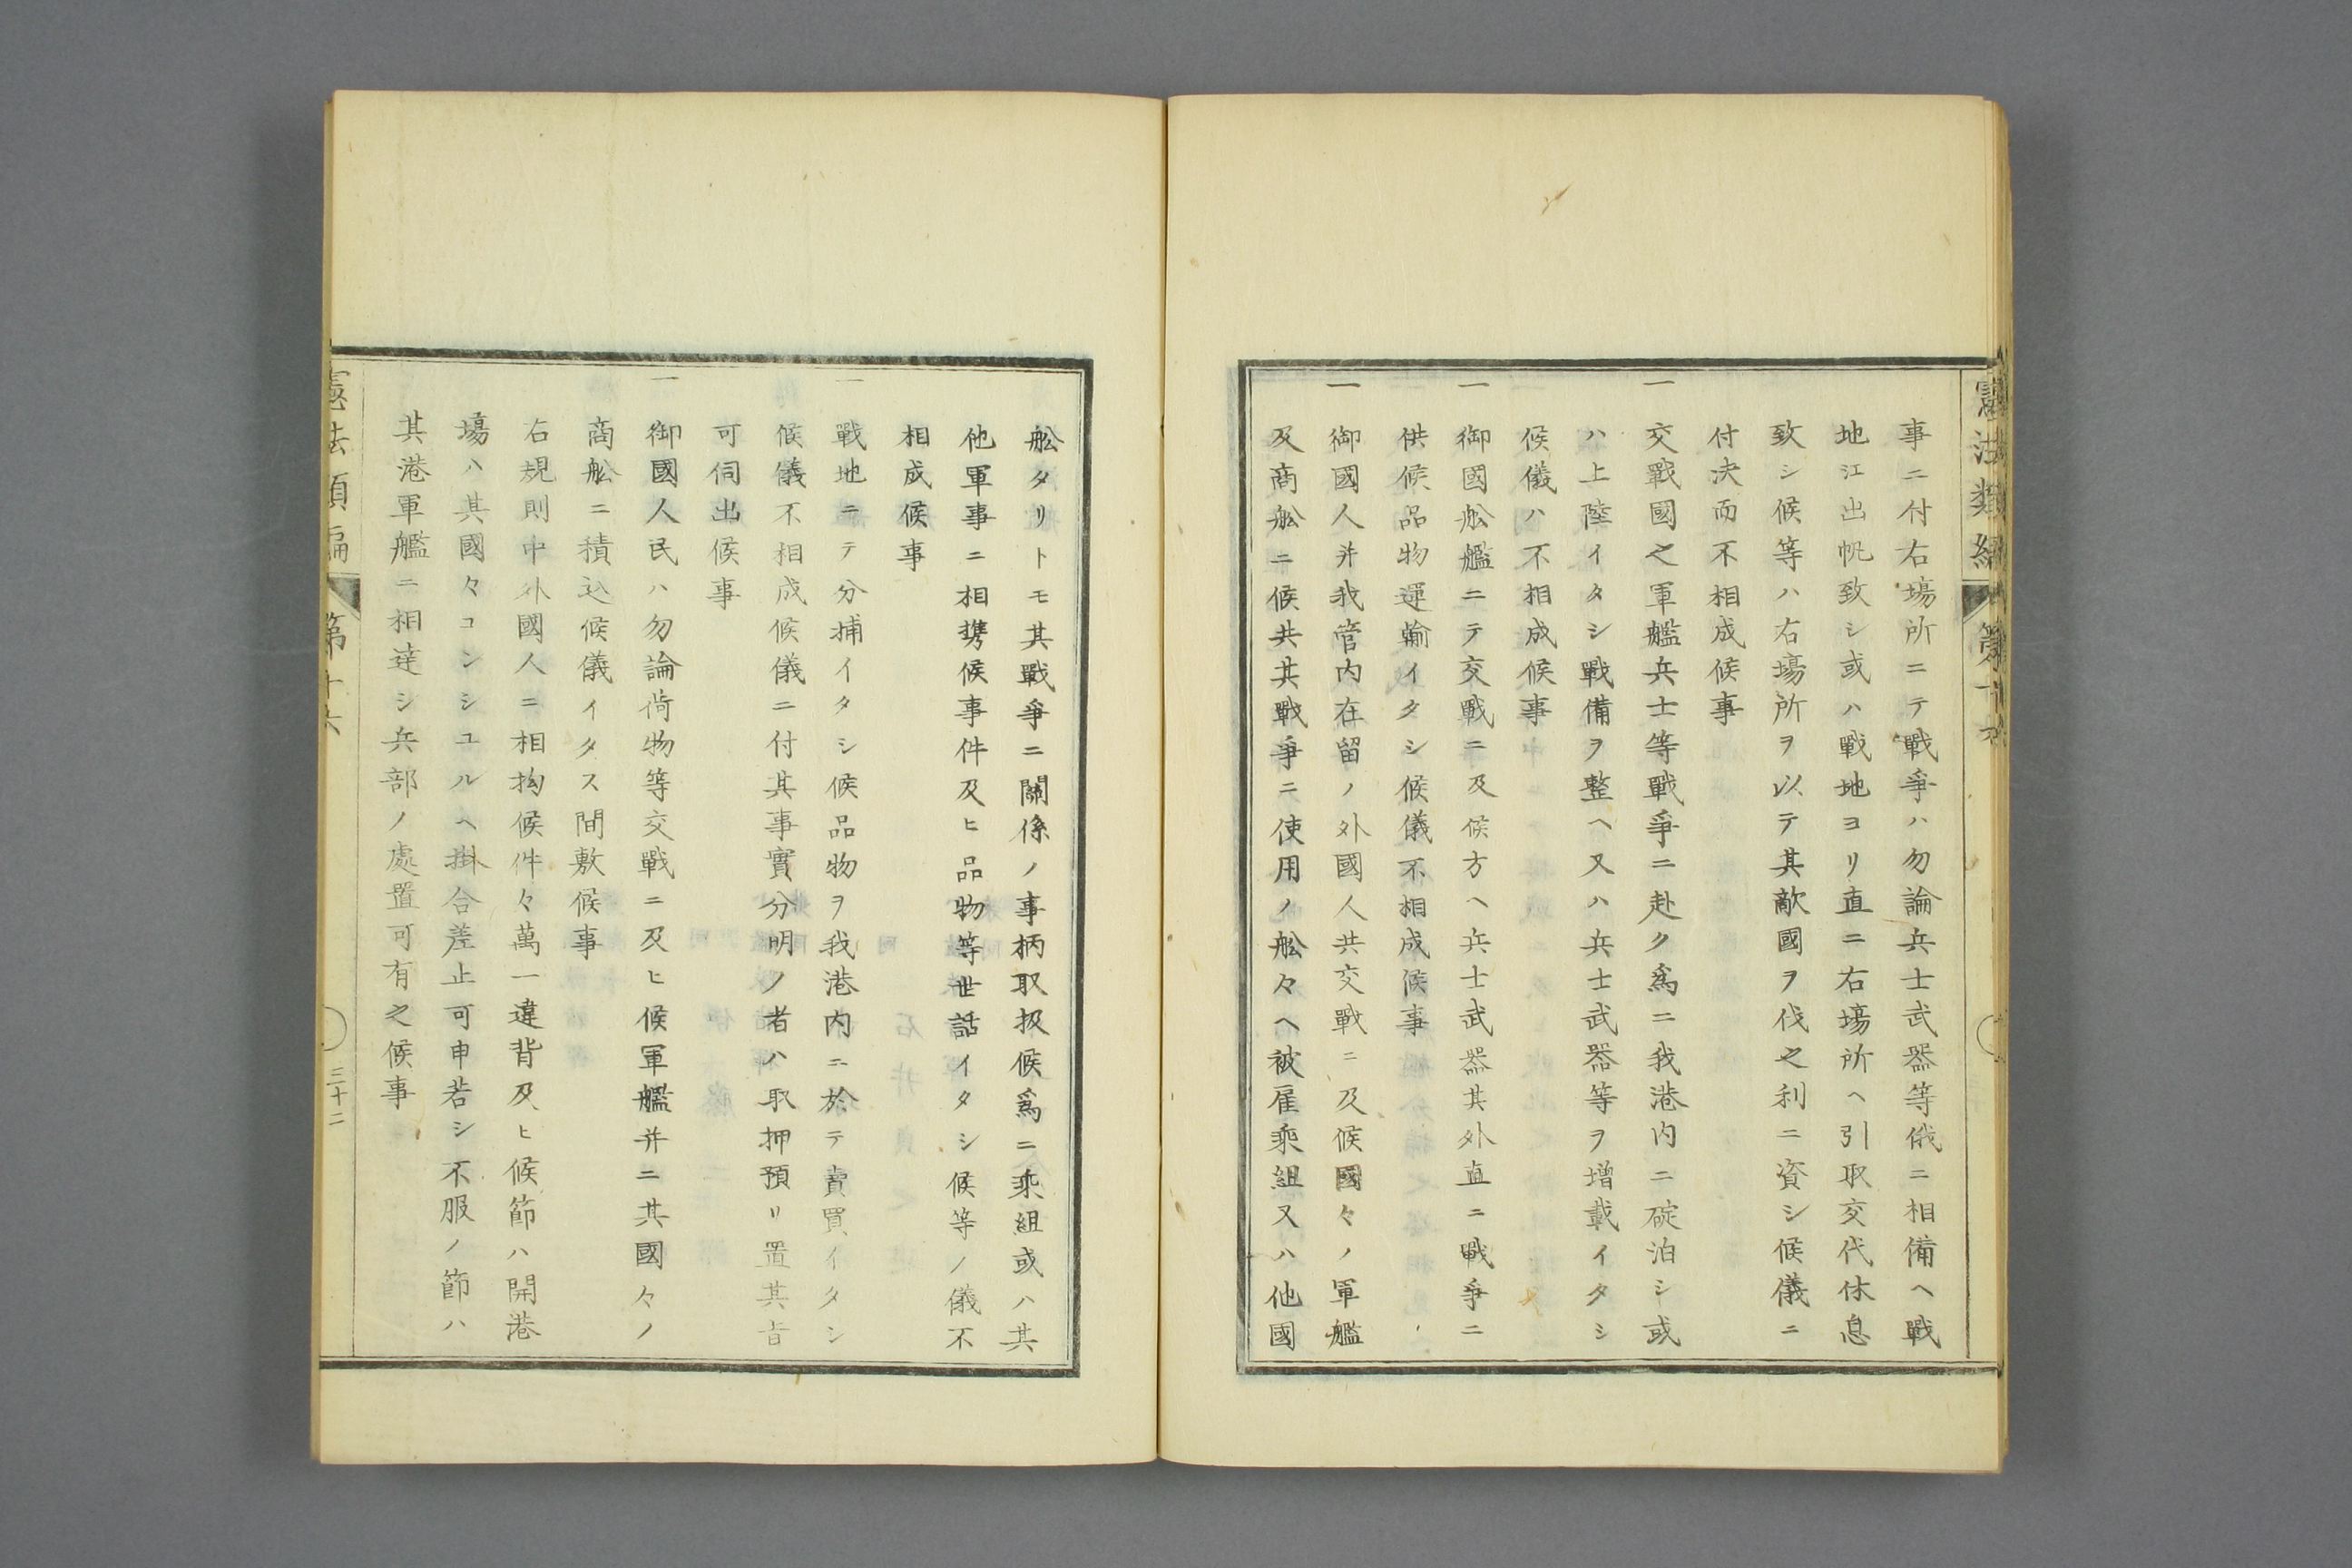 憲法類編 第十六
事ニ付右場所ニテ戰爭ハ勿論兵士武器等俄ニ相備ヘ戰
地江出帆致シ或ハ戰地ヨリ直ニ右場所ヘ引取交代休息
致シ候等ハ右場所ヲ以テ其敵國ヲ伐之利ニ資シ候儀ニ
付決而不相成候事
一 交戰國之軍艦兵士等戰爭ニ赴ク爲ニ我港内ニ碇泊シ或
ハ上陸イタシ戰備ヲ整ヘ又ハ兵士武器等ヲ增載イタシ
候儀ハ不相成候事
一 御國舩艦ニテ交戰ニ及候方ヘ兵士武器其外直ニ戰爭ニ
供候品物運輸イタシ候儀不相成候事
一 御國人并我管内在留ノ外國人共交戰ニ及候國々ノ軍艦
及商舩ニ候共其戰爭ニ使用ノ舩々ヘ被雇乘組又ハ他國
舩タリトモ其戰爭ニ關係ノ事柄取扱候爲ニ乘組或ハ其
他軍事ニ相携候事件及ヒ品物等世話イタシ候等ノ儀不
相成候事
一 戰地ニテ分捕イタシ候品物ヲ我港内ニ於テ賣買イタシ
候儀不相成候儀ニ付其事實分明ノ者ハ取押預リ置其旨
可伺出候事
一 御國人民ハ勿論荷物等交戰ニ及ヒ候軍艦并ニ其國々ノ
商舩ニ積込候儀イタス間敷候事
右規則中外國人ニ相拘候件々萬一違背及ヒ候節ハ開港
場ハ其國々コンシユルヘ掛合差止可申若シ不服ノ節ハ
其港軍艦ニ相達シ兵部ノ處置可有之候事
憲法類編 第十六
三十二